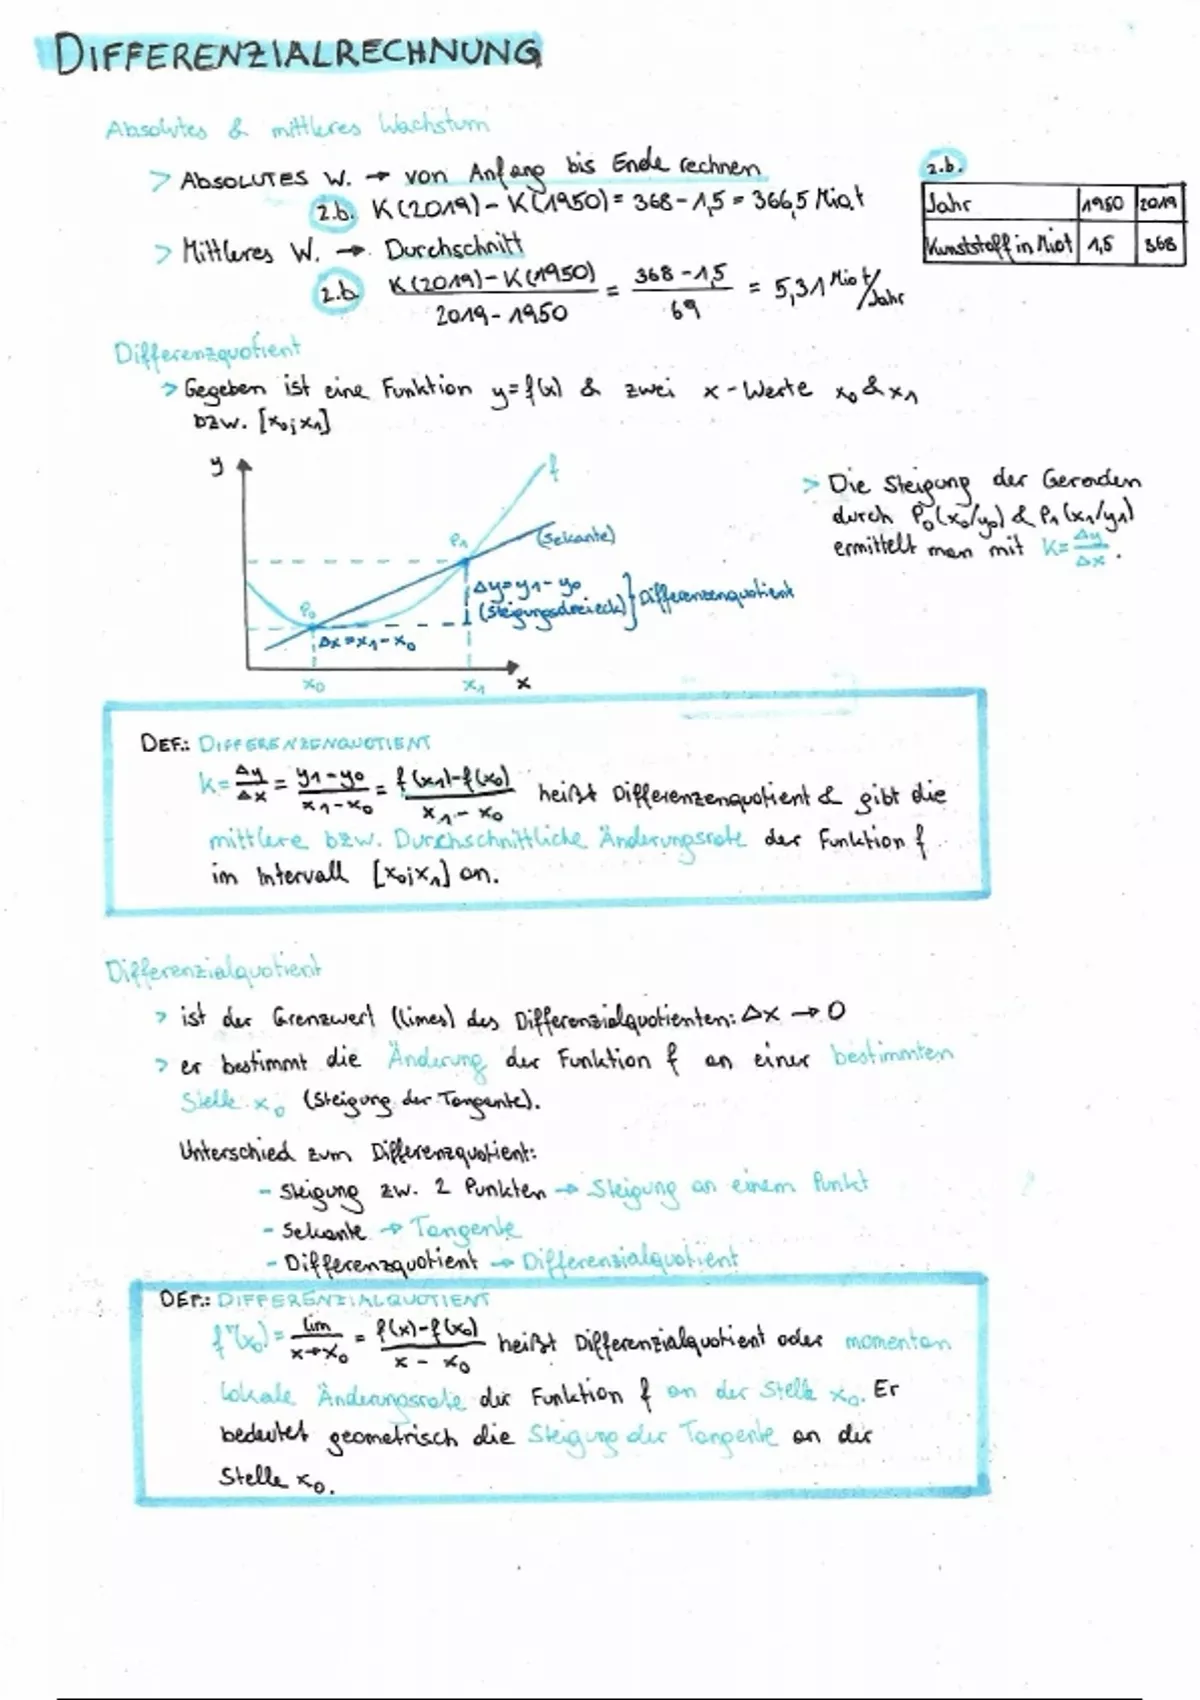 DIFFERENZIALRECHNUNG
Absolutes & mittleres Wachstum
> ABSOLUTES W. → von Anfang bis Ende rechnen
z.b. K(2019) - K(1950) = 368 - 1,5 = 366,5 Mio.t
z.b.
Jahr 1950 2019
Kunststoff in Miot 1,5 368
> Mittleres W. → Durchschnitt
z.b. K(2019) - K(1950) / 2019 - 1950 = 368 - 1,5 / 69 = 5,31 Mio t/Jahr
Differenzquotient
> Gegeben ist eine Funktion y=f(x) & zwei x-Werte x₀ & x₁
bzw. [x₀;x₁]
y
f
P₁
(Sekante)
Δy=y₁-y₀
(Steigungsdreieck) } Differenzenquotient
P₀
Δx=x₁-x₀
x₀ x₁ x
> Die Steigung der Geraden
durch P₀(x₀/y₀) & P₁(x₁/y₁)
ermittelt man mit k=Δy/Δx.
DEF.: DIFFERENZENQUOTIENT
k= Δy/Δx = y₁-y₀/x₁-x₀ = f(x₁)-f(x₀)/x₁-x₀ heißt Differenzenquotient & gibt die
mittlere bzw. Durchschnittliche Änderungsrate der Funktion f
im Intervall [x₀;x₁] an.
Differenzialquotient
> ist der Grenzwert (limes) des Differenzialquotienten: Δx → 0
> er bestimmt die Änderung der Funktion f an einer bestimmten
Stelle x₀ (Steigung der Tangente).
Unterschied zum Differenzquotient:
- Steigung zw. 2 Punkten → Steigung an einem Punkt
- Sekante → Tangente
- Differenzquotient → Differenzialquotient
DEF.: DIFFERENZIALQUOTIENT
f''(x₀) = lim x→x₀ = f(x)-f(x₀)/x - x₀ heißt Differenzialquotient oder momentan
lokale Änderungsrate der Funktion f an der Stelle x₀. Er
bedeutet geometrisch die Steigung der Tangente an der
Stelle x₀.